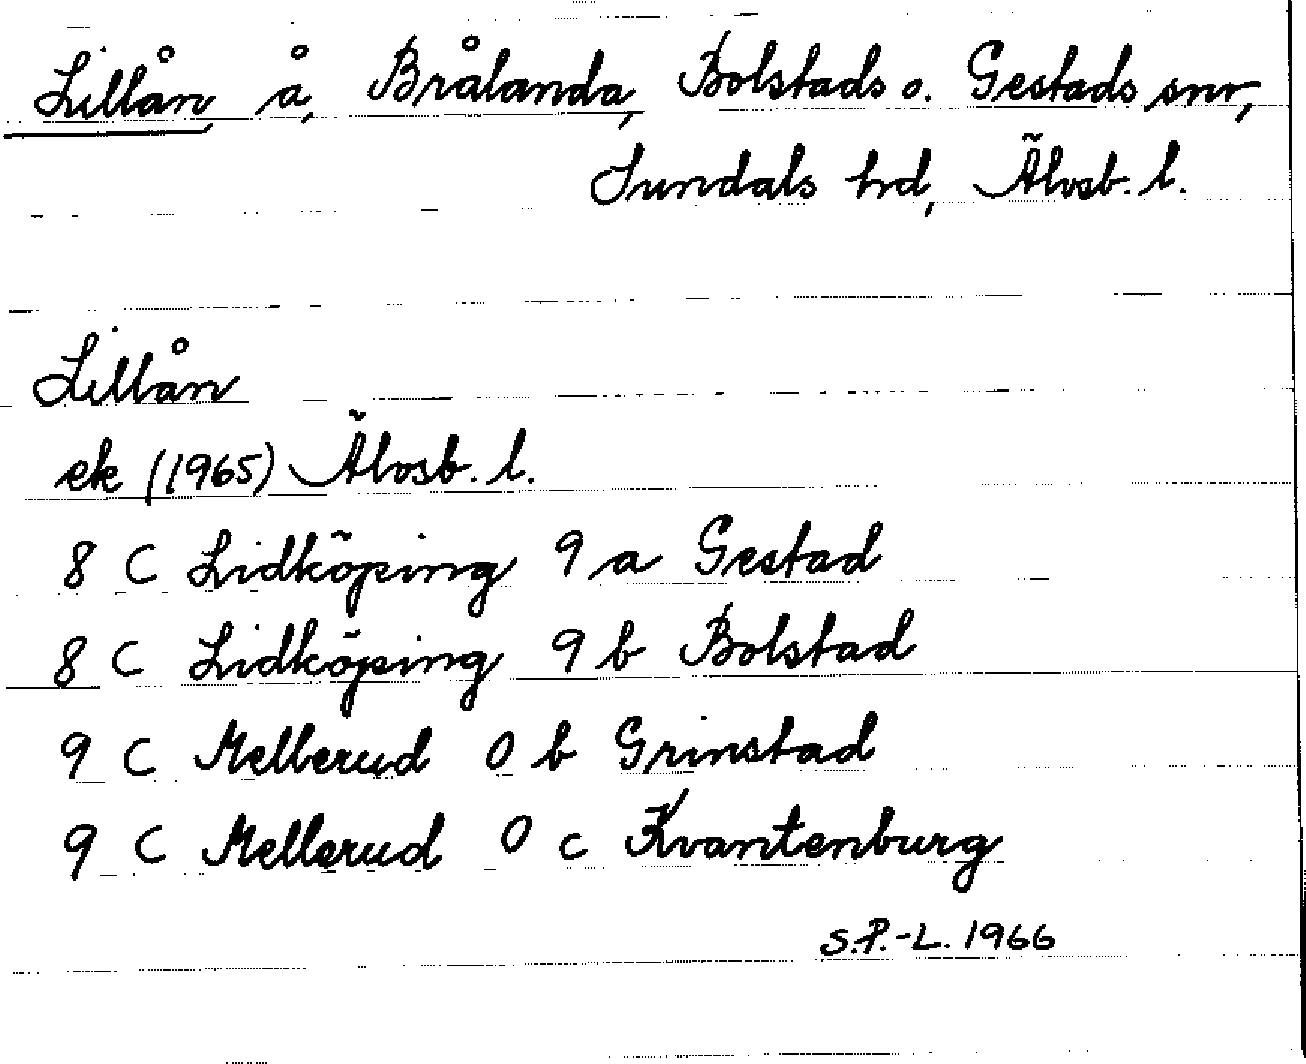 Lillån å, Brålanda, Bolstads o. Gestads snr,
Sundals hrd, Älvsb. l.
Lillån
ek (1965) Älvsb. l.
8 C Lidköping 9 a Gestad
8 C Lidköping 9 b Bolstad
9 C Mellerud 0 b Grinstad
9 C Mellerud 0 c Kvantenburg
S.P.-L. 1966